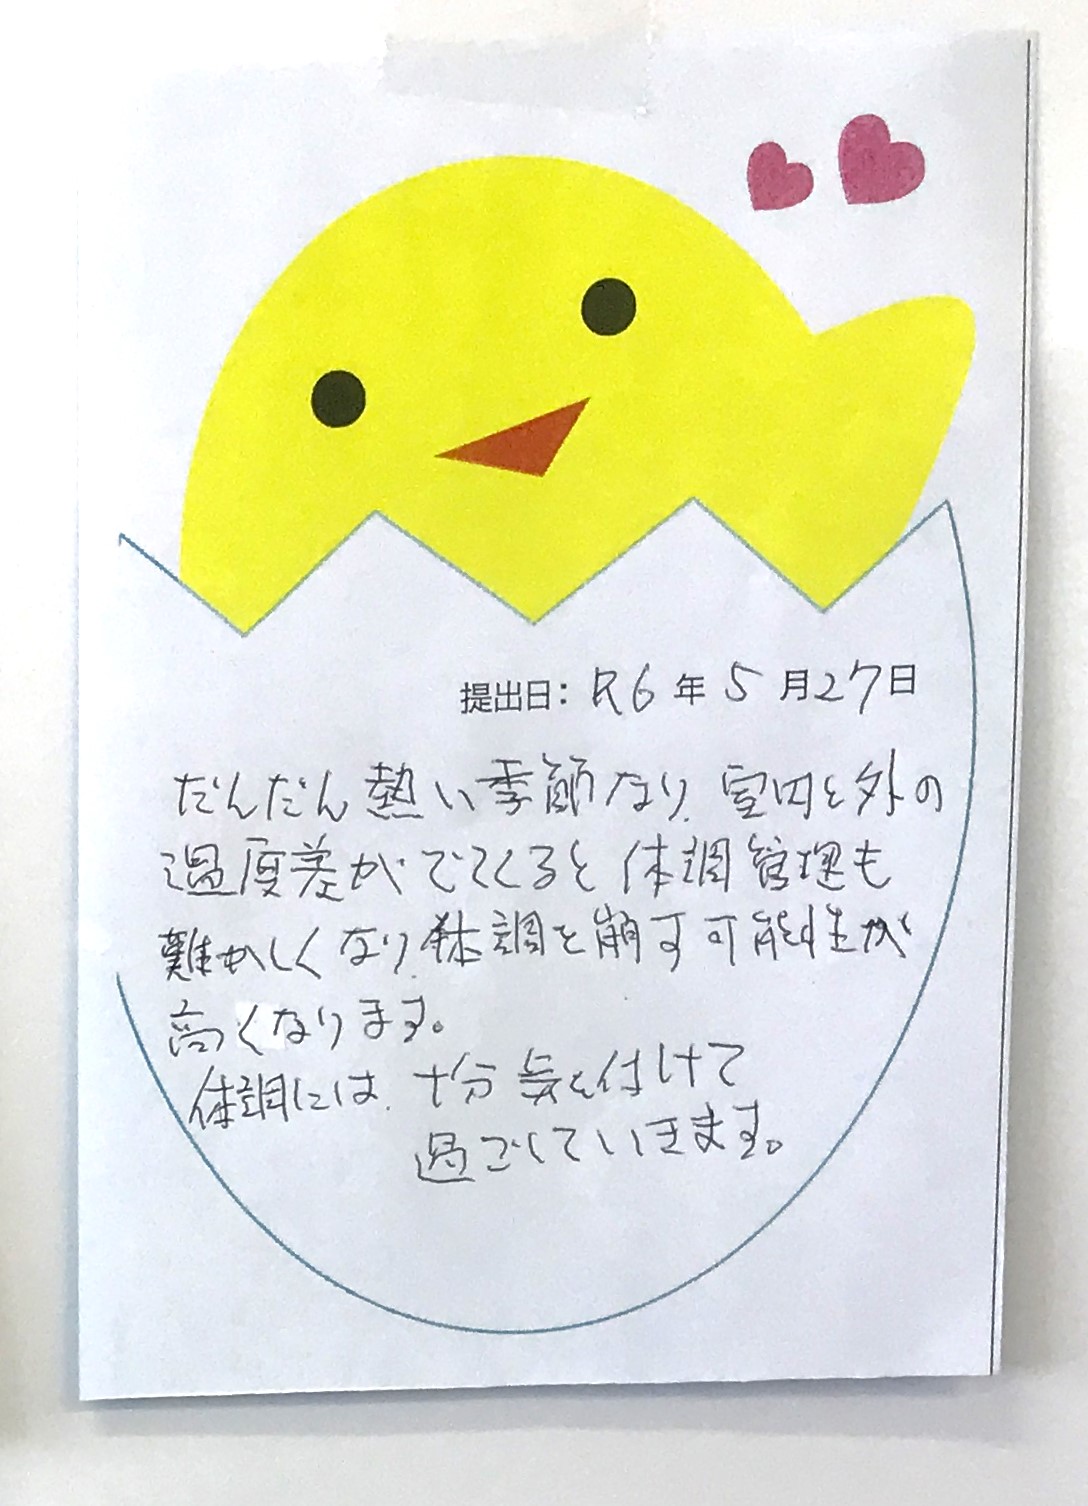 提出日: R6年5月27日
だんだん熱い季節なり、室内と外の
温度差がでてくると体調管理も
難かしくなり、体調を崩す可能性が
高くなります。
体調には、十分気を付けて
過ごしていきます。